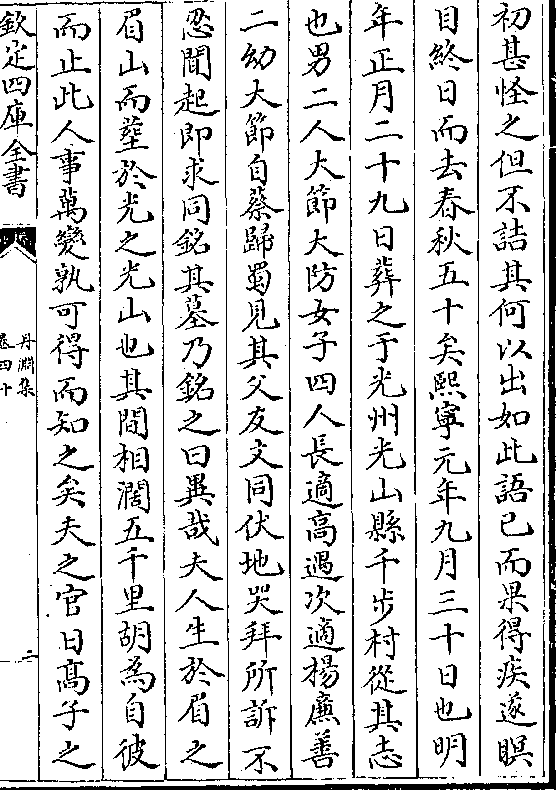 初甚怪之但不詰其何以出如此語已而果得疾遂瞑
目終日而去春秋五十矣熙寧元年九月三十日也明
年正月二十九日葬之于光州光山縣千步村從其志
也男二人大節大防女子四人長適高遇次適楊廉善
二幼大節自蔡歸蜀見其父友文同伏地哭拜所訴不
忍聞起即求同銘其墓乃銘之曰異哉夫人生於眉之
眉山而葬於光之光山也其間相濶五千里胡為自彼
而止此人事萬變孰可得而知之矣夫之官日髙子之
欽定四庫全書
丹淵集
卷四十
二